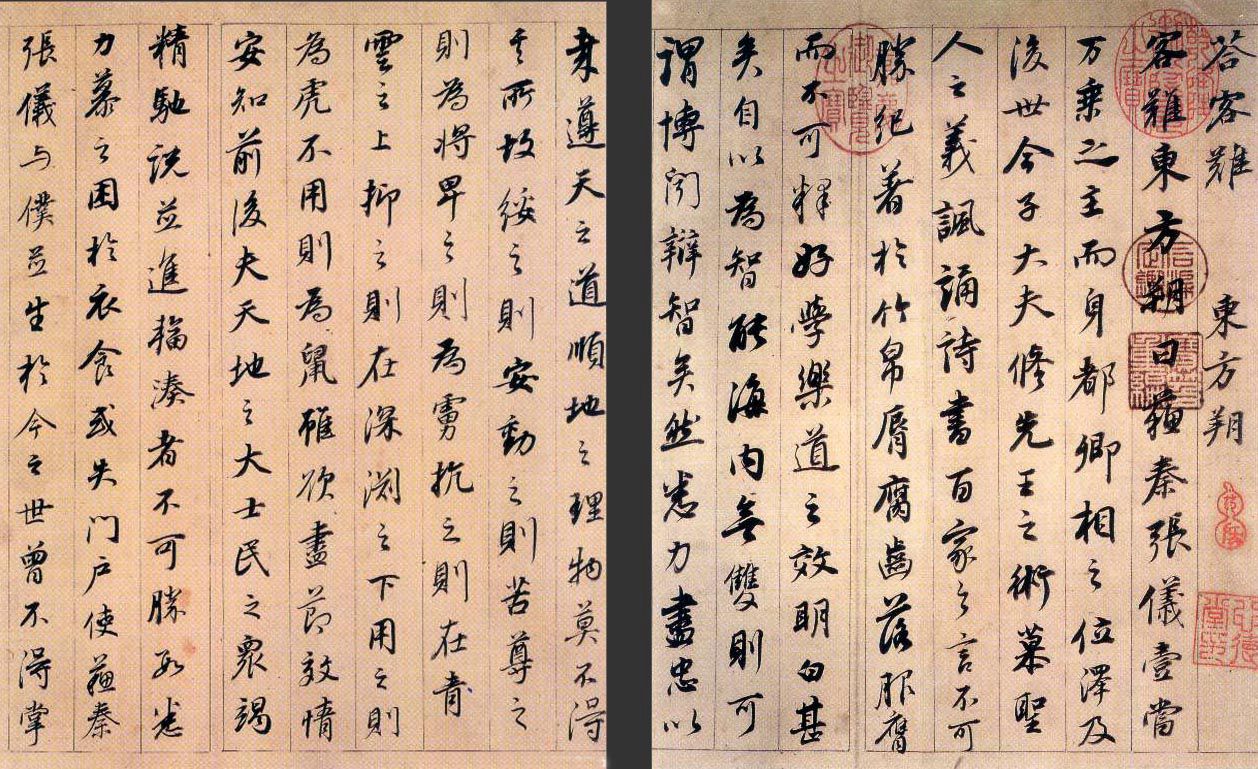 荅客難 東方朔
客難東方朔曰蘓秦張儀壹當
万乗之主而身都卿相之位澤及
後世今子大夫修先王之術慕聖
人之義諷誦詩書百家之言不可
勝紀著於竹帛脣腐齒落服膺
而不可釋好學樂道之效明白甚
矣自以為智能海内無雙則可
謂博聞辯智矣然悉力盡忠以
遵天之道順地之理物莫不得
其所故綏之則安動之則苦尊之
則為將卑之則為虜抗之則在青
雲之上抑之則在深淵之下用之則
為虎不用則為鼠雖欲盡節效情
安知前後夫天地之大士民之衆竭
精馳說並進輻湊者不可勝數悉
力慕之困於衣食或失門户使蘓秦
張儀与僕並生於今之世曾不得掌